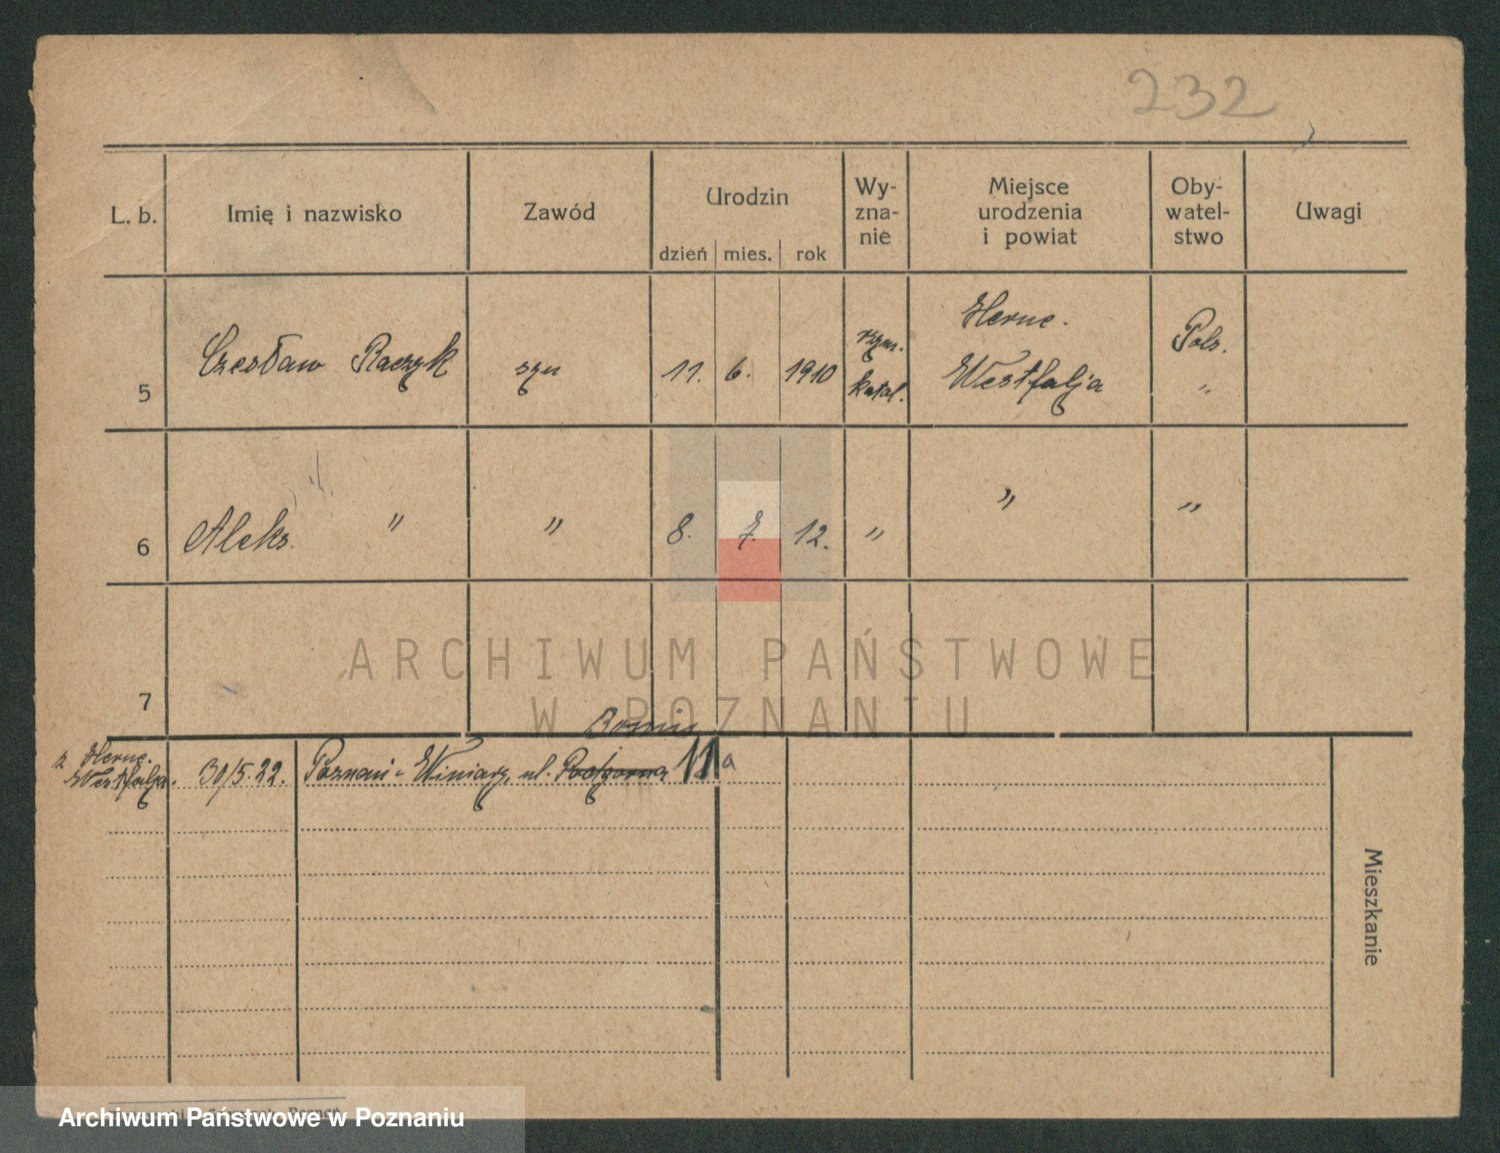 232
L. b.
Imię i nazwisko
Zawód
Urodzin
dzień
mies.
rok
Wy-
zna-
nie
Miejsce
urodzenia
i powiat
Oby-
watel-
stwo
Uwagi
5
Czesław Raczyk
syn
11.
6.
1910
rzym.
katol.
Herne.
Westfalja
Pols.
"
6
Aleks. "
"
8.
7.
12.
"
"
"
7
ARCHIWUM PAŃSTWOWE
W POZNANIU
z Herne.
Westfalja.
30/5.22.
Poznań - Winiary, ul. Podgorna 11a
Mieszkanie
Archiwum Państwowe w Poznaniu